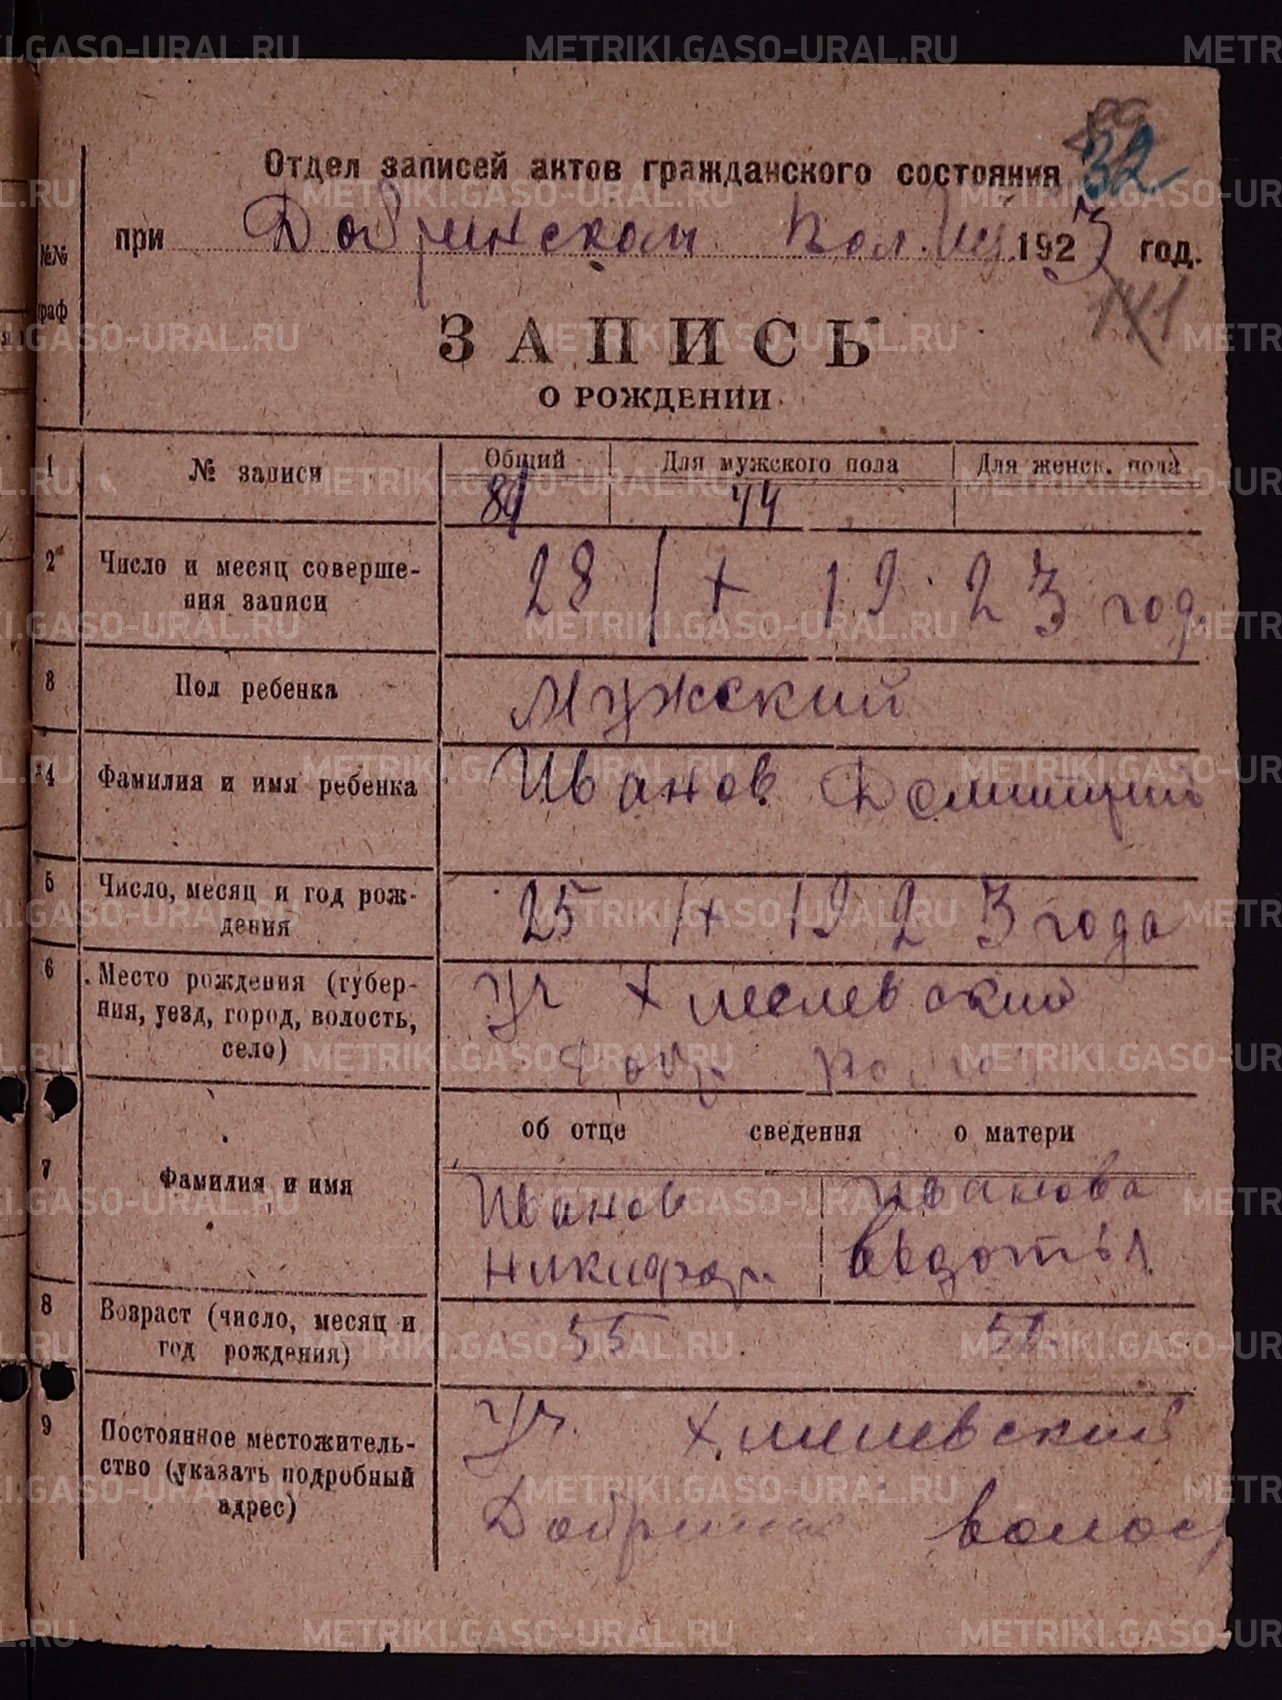 89
Отдел записей актов гражданского состояния 32
при Добринском Вол. 1923 год.
№№ граф
141
ЗАПИСЬ
О РОЖДЕНИИ
1 № записи Общий Для мужского пола Для женск. пола
44
2 Число и месяц соверше-
ния записи 28/X 1923 год.
3 Пол ребенка Мужский
4 Фамилия и имя ребенка Иванов Домитрий
5 Число, месяц и год рож-
дения 25/X 1923 года
6 Место рождения (губер-
ния, уезд, город, волость,
село) Уч Хмелевский
об отце сведения о матери
7 Фамилия и имя Иванов Иванова
Никифор Евдотья
8 Возраст (число, месяц и
год рождения) 55
9 Постоянное местожитель-
ство (указать подробный
адрес) Уч. Хмилевский
волос
METRIKI.GASO-URAL.RU